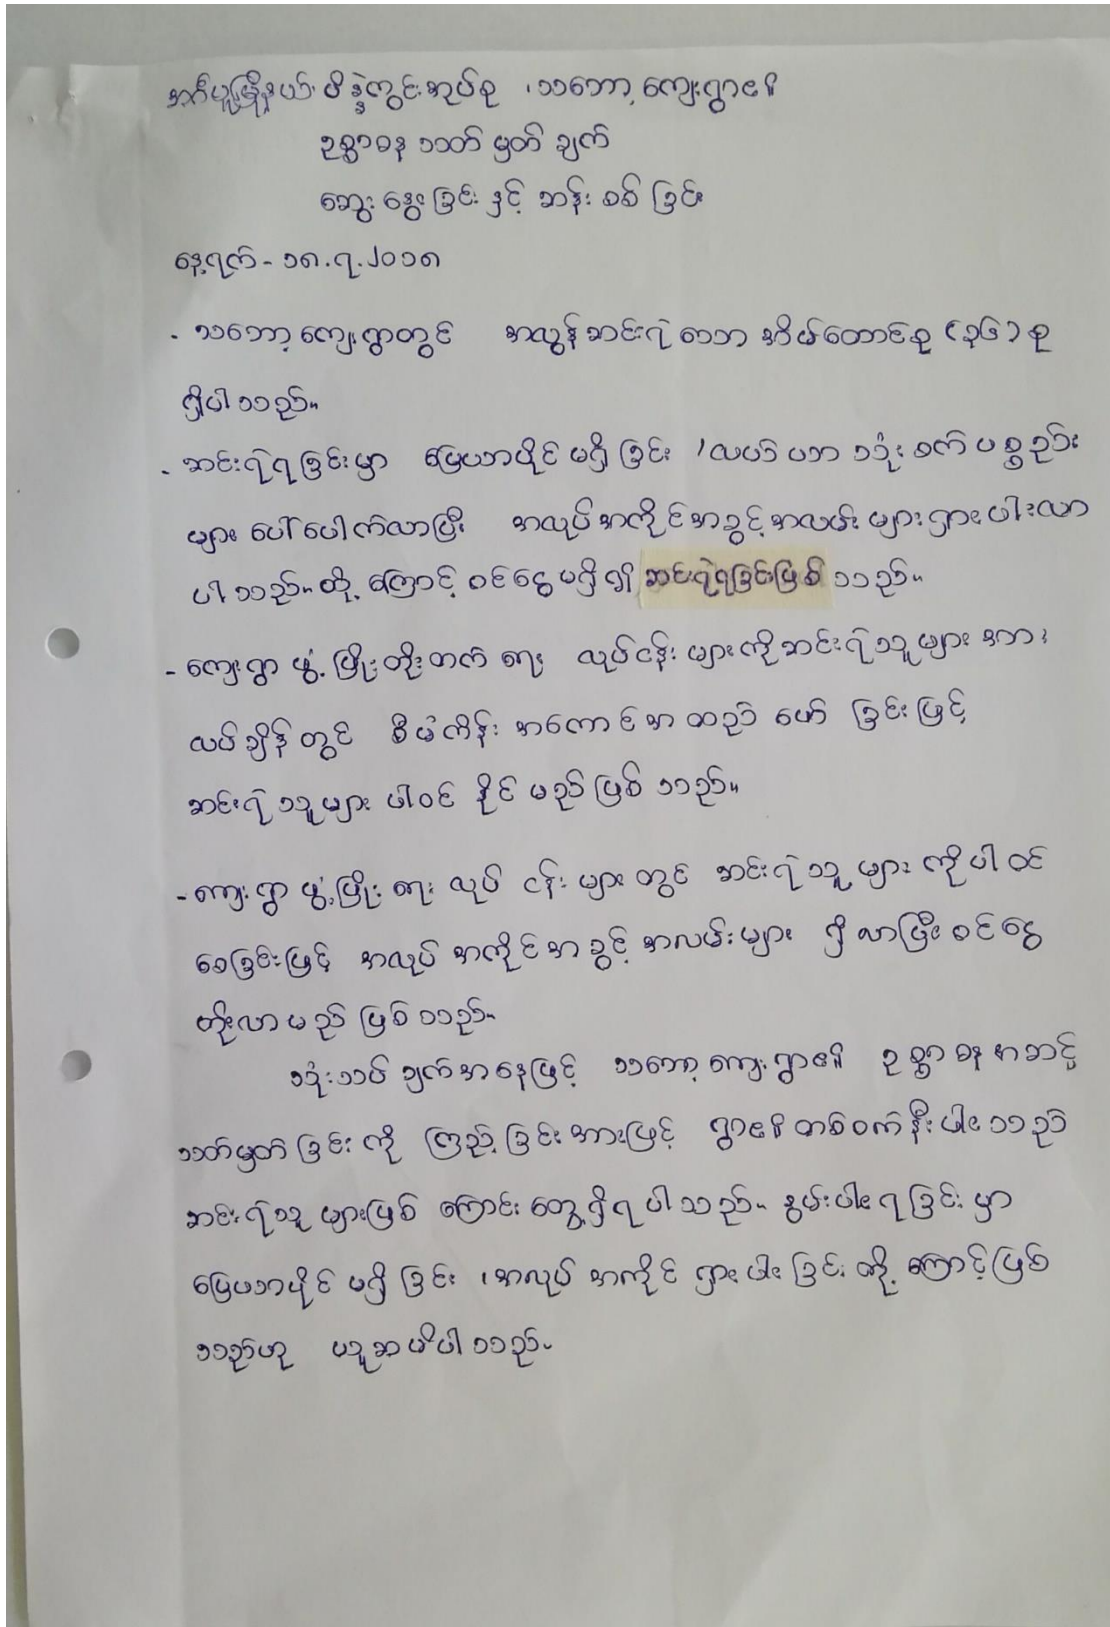 အင်္ဂပူမြို့နယ်၊ ပိန္နဲကွင်းအုပ်စု ၊ သဘော့ ကျေးရွာ၏
ဥစ္စာဓန သတ် မှတ် ချက်
ဆွေး နွေး ခြင်း နှင့် ဆန်း စစ် ခြင်း
နေ့ရက် - ၁၈.၇.၂၀၁၈
- သဘော့ ကျေးရွာတွင် အလွန်ဆင်းရဲ သော အိမ်ထောင်စု (၃၆) စု
ရှိပါသည်။
- ဆင်းရဲရခြင်းမှာ မြေယာပိုင် မရှိ ခြင်း ၊ လယ် ယာ သုံး စက် ပစ္စည်း
များ ပေါ်ပေါက်လာပြီး အလုပ်အကိုင်အခွင့်အလမ်း များ ရှား ပါးလာ
ပါသည်။ ထို့ ကြောင့် ဝင်ငွေ မရှိ ၍ ဆင်းရဲရခြင်းဖြစ် သည်။
- ကျေးရွာ ဖွံ့ ဖြိုး တိုးတက် ရေး လုပ်ငန်း များကို ဆင်းရဲ သူများ အား
လပ်ချိန် တွင် စီမံကိန်း အကောင်အထည် ဖော် ခြင်း ဖြင့်
ဆင်းရဲ သူများ ပါဝင် နိုင် မည် ဖြစ် သည်။
- ကျေးရွာ ဖွံ့ဖြိုး ရေး လုပ် ငန်း များ တွင် ဆင်းရဲ သူ များ ကို ပါ ဝင်
စေခြင်းဖြင့် အလုပ် အကိုင် အခွင့် အလမ်းများ ရှိ လာပြီး ဝင်ငွေ
တိုးလာ မည် ဖြစ် သည်။
သုံးသပ် ချက်အနေဖြင့် သဘော့ ကျေးရွာ၏ ဥစ္စာ ဓန အဆင့်
သတ်မှတ် ခြင်း ကို ကြည့် ခြင်းအားဖြင့် ရွာ၏ တစ်ဝက် နီး ပါး သည်
ဆင်းရဲသူ များဖြစ် ကြောင်း တွေ့ရှိရ ပါသည်။ နွမ်းပါး ရခြင်း မှာ
မြေယာပိုင် မရှိ ခြင်း ၊ အလုပ် အကိုင် ရှား ပါး ခြင်း တို့ ကြောင့်ဖြစ်
သည်ဟု ယူဆ မိပါသည်။